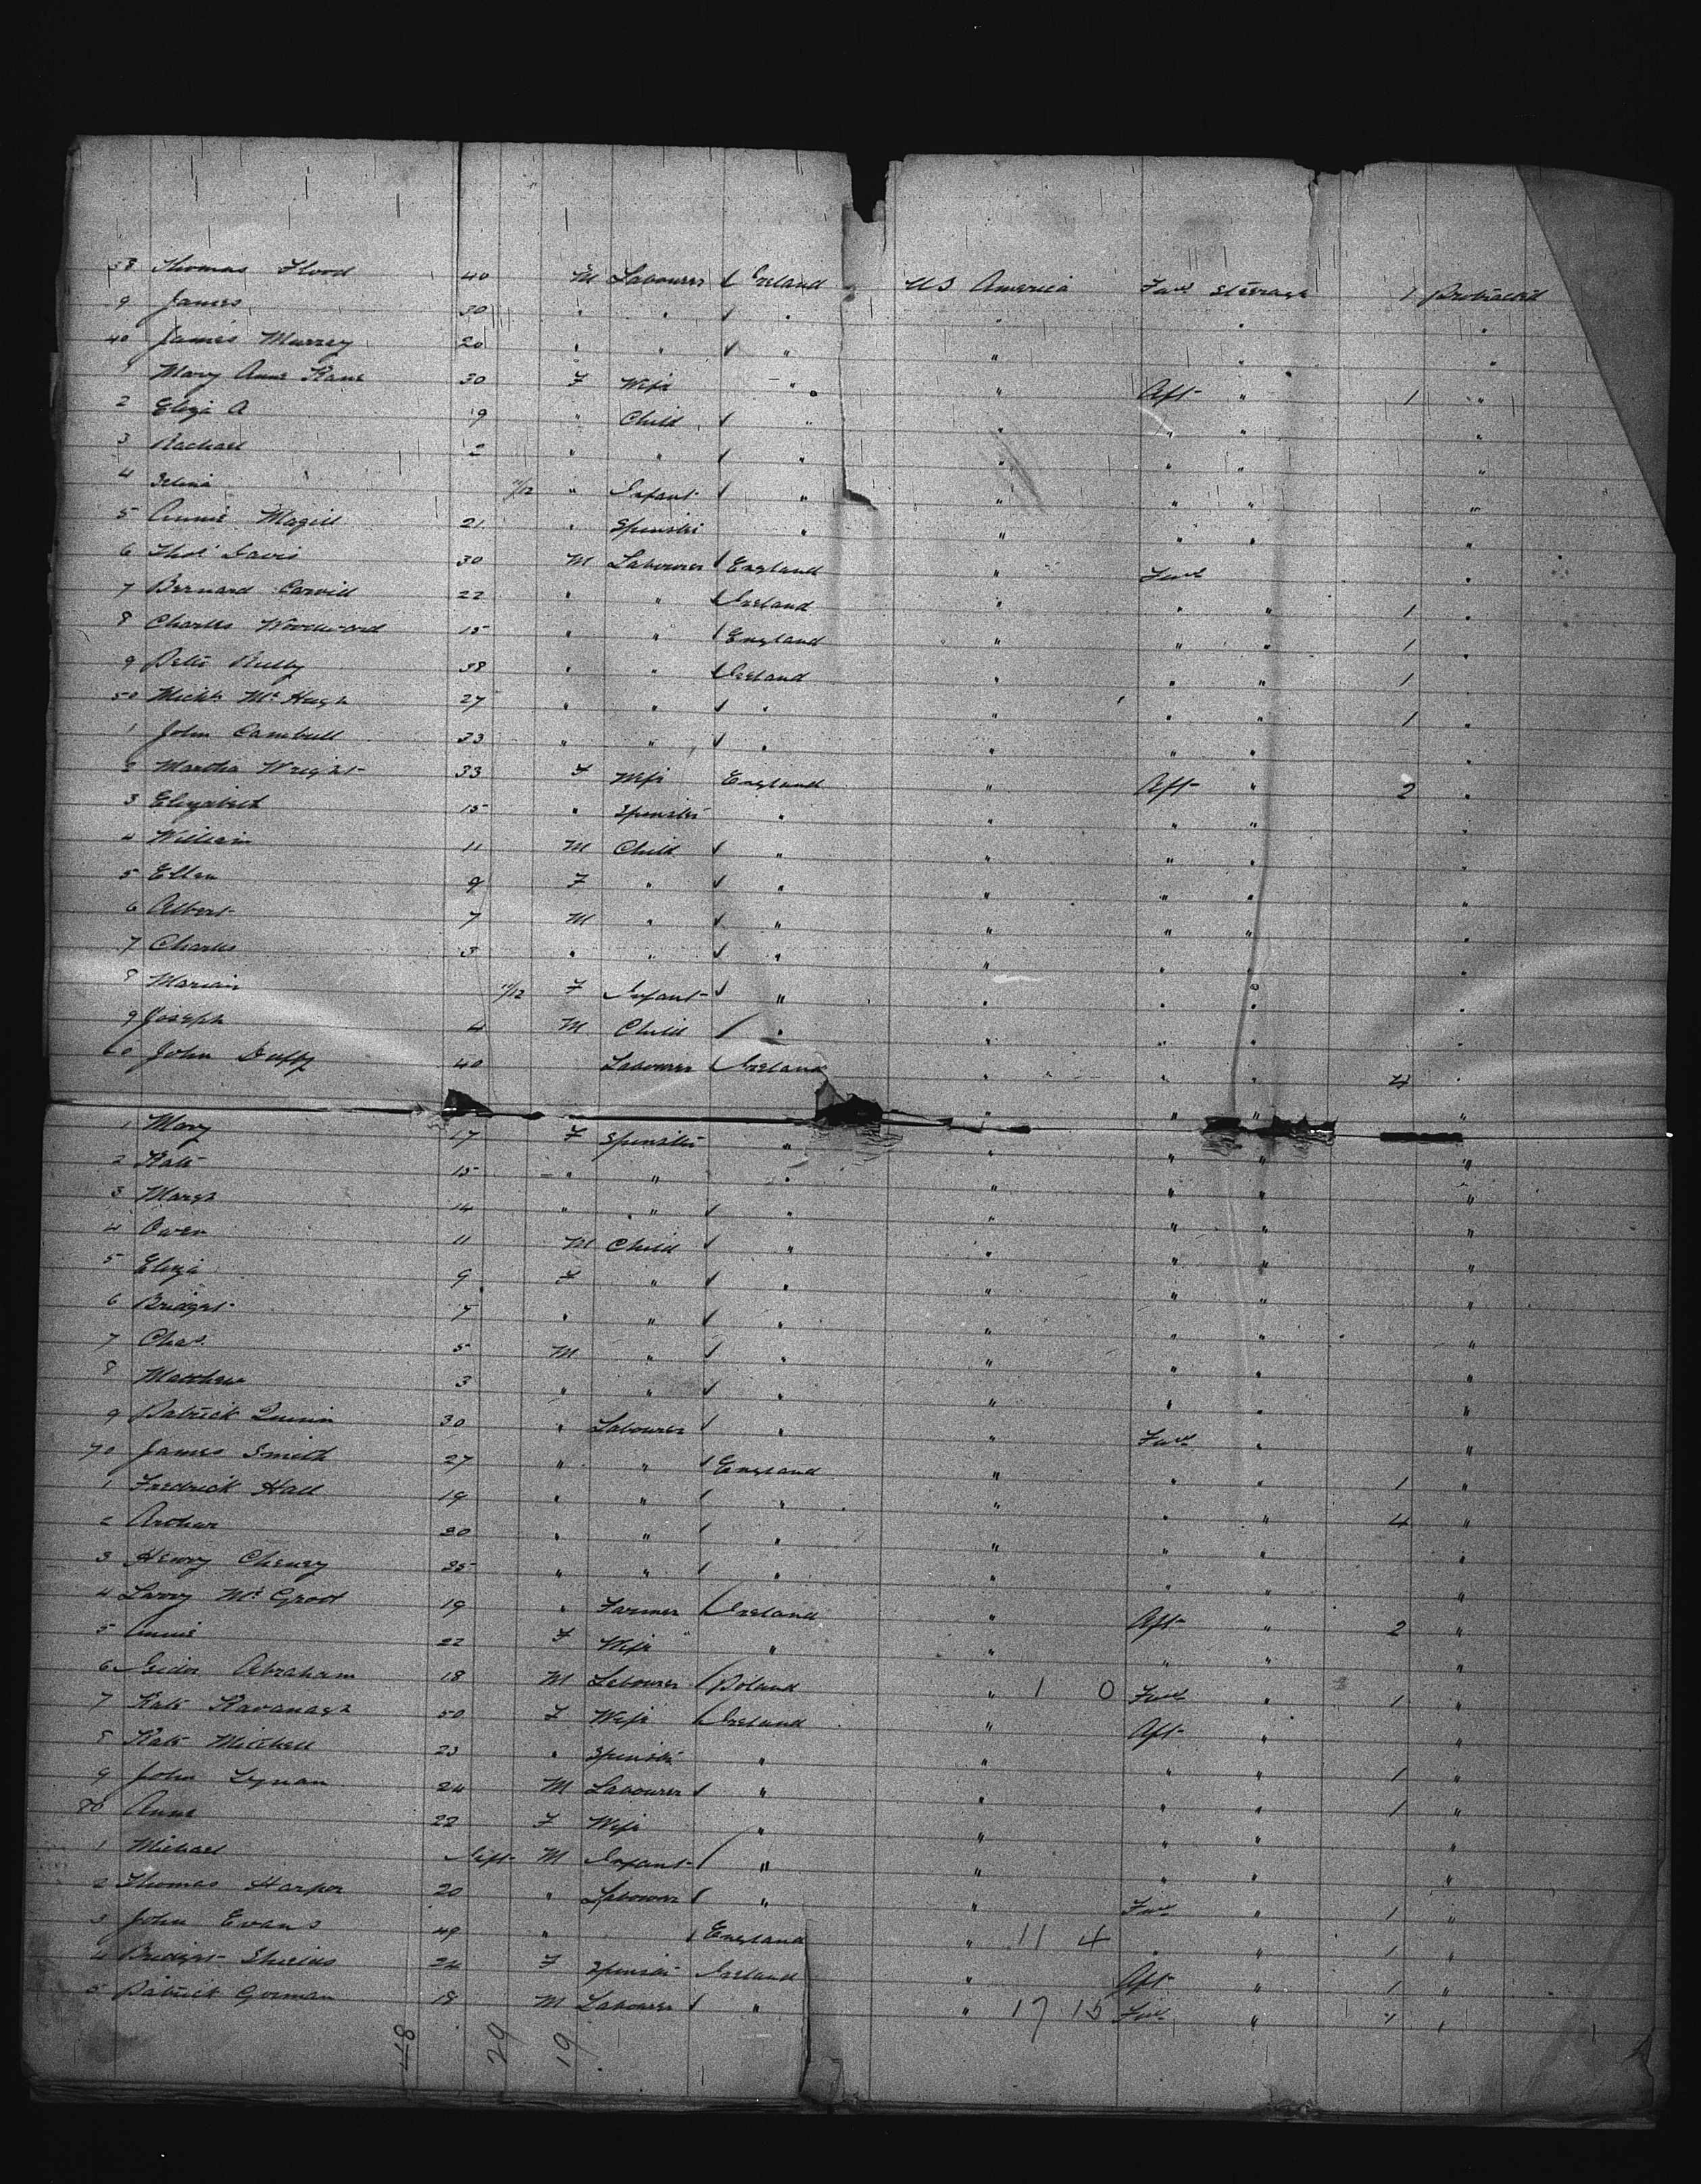 38 Thomas Flood 40 M Labourer ✓ Ireland U S America Fwd Steerage 1 Protracted
9 James 30 " " ✓ " " " "
40 James Murrey 20 " " ✓ " " " "
1 Mary Ann Kane 30 F Wife " " Aft " 1 "
2 Eliza A 9 " Child ✓ " " " " "
3 Rachael 2 " " ✓ " " " " "
4 Selina 11/12 " Infant ✓ " " " " "
5 Annie Magill 21 " Spinster " " " " "
6 Thos Davis 30 M Labourer ✓ England " Fwd "
7 Bernard Carvill 22 " " ✓ Ireland " " " 1 "
8 Charles Woodward 15 " " ✓ England " " " 1 "
9 Peter Reilly 38 " " ✓ Ireland " " " 1 "
50 Michl McHugh 27 " " ✓ " " " " 1 "
1 John Cambell 23 " " ✓ " " " " "
2 Martha Wright 33 F Wife England " Aft " 2 "
3 Elizabeth 15 " Spinster " " " " "
4 William 11 M Child ✓ " " " " "
5 Ellen 9 F " ✓ " " " " "
6 Albert 7 M " ✓ " " " " "
7 Charles 3 " " ✓ " " " " "
8 Marian 11/12 F Infant ✓ " " " " "
9 Joseph 4 M Child ✓ " " " " "
60 John Duffy 40 Labourer ✓ Ireland " " " 4 "
1 Mary 17 F Spinster " " " " "
2 Kate 15 " " " " " " "
3 Margt 14 " " ✓ " " " " "
4 Owen 11 M Child ✓ " " " " "
5 Eliza 9 F " ✓ " " " " "
6 Bridget 7 " " ✓ " " " " "
7 Chas. 5 M " ✓ " " " " "
8 Matthew 3 " " ✓ " " " " "
9 Patrick Quinn 30 " Labourer ✓ " " Fwd " "
70 James Smith 27 " " ✓ England " " " 1 "
1 Fredrick Hall 19 " " ✓ " " " " 4 "
2 Arthur 20 " " ✓ " " " " "
3 Henry Cheney 25 " " ✓ " " " " "
4 Larry McGrod 19 " Farmer ✓ Ireland " Aft " 2 "
5 Annie 22 F Wife " " " " "
6 Abraham 18 M Labourer ✓ Poland " 1 0 Fwd " 1 "
7 Kate Kavanagh 50 F Wife ✓ Ireland " Aft " "
8 Kate Mitchell 23 " Spinster " " " " 1 "
9 John Lynan 24 M Labourer ✓ " " " " 1 "
80 Anne 22 F Wife " " " " "
1 Michael Inft M Infant ✓ " " " " "
2 Thomas Harper 20 " Labourer ✓ " " Fwd " 1 "
3 John Evans 49 " ✓ England " 11 4 " " 1 "
4 Bridget Shields 24 F Spinster Ireland " Aft " 1 "
5 Patrick Gorman 18 M Labourer ✓ " " 17 15 Fwd " 1 "
48 29 19